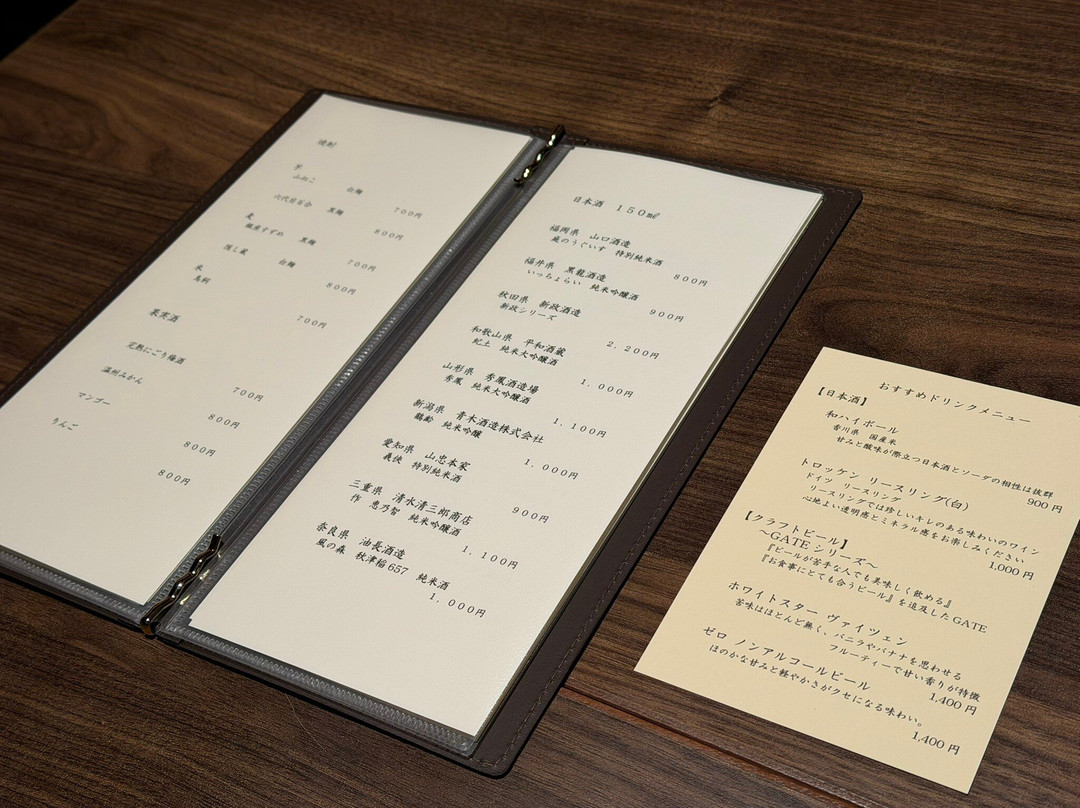 焼酎
芋
山ねこ 白麹
700円
六代目百合 黒麹
800円
麦
銀座すずめ 黒麹
700円
隠し蔵 白麹
800円
米
鳥飼
700円
果実酒
完熟にごり梅酒
700円
温州みかん
800円
マンゴー
800円
りんご
800円
日本酒 150㎖
福岡県 山口酒造
庭のうぐいす 特別純米酒
800円
福井県 黒龍酒造
いっちょらい 純米吟醸酒
900円
秋田県 新政酒造
新政シリーズ
2,200円
和歌山県 平和酒蔵
紀土 純米大吟醸酒
1,000円
山形県 秀鳳酒造場
秀鳳 純米大吟醸酒
1,100円
新潟県 青木酒造株式会社
鶴齢 純米吟醸
1,000円
愛知県 山忠本家
義侠 特別純米酒
900円
三重県 清水清三郎商店
作 恵乃智 純米吟醸酒
1,100円
奈良県 油長酒造
風の森 秋津穂657 純米酒
1,000円
おすすめドリンクメニュー
【日本酒】
和ハイボール
香川県 国産米
甘みと酸味が際立つ日本酒とソーダの相性は抜群
900円
トロッケン リースリング(白)
ドイツ リースリング
リースリングでは珍しいキレのある味わいのワイン
心地よい透明感とミネラル感をお楽しみください
1,000円
【クラフトビール】
～GATEシリーズ～
『ビールが苦手な人でも美味しく飲める』
『お食事にとても合うビール』を追及したGATE
ホワイトスター ヴァイツェン
苦味はほとんど無く、バニラやバナナを思わせる
フルーティーで甘い香りが特徴
1,400円
ゼロ ノンアルコールビール
ほのかな甘みと軽やかさがクセになる味わい。
1,400円